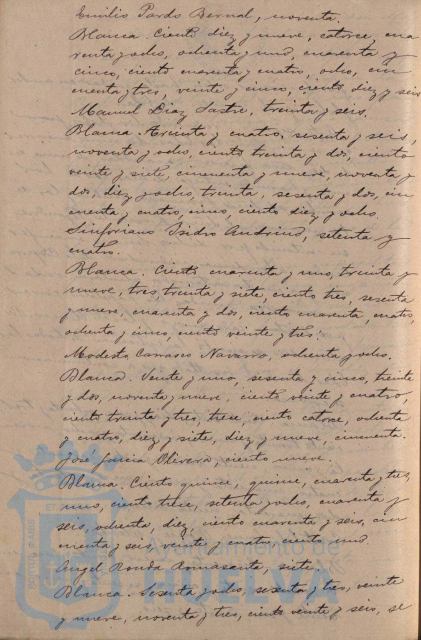 Emilio Pardo Bernal, noventa.
Blanca. Ciento diez y nueve, catorce, cua
renta y ocho, ochenta y uno, cuarenta y
cinco, ciento cuarenta y cuatro, ocho, cin
cuenta y tres, veinte y cinco, ciento diez y seis
Manuel Diaz Sastre, treinta y seis.
Blanca. Treinta y cuatro, sesenta y seis,
noventa y ocho, ciento treinta y dos, ciento
veinte y siete, cincuenta y nueve, noventa y
dos, diez y ocho, treinta, sesenta y dos, cin
cuenta y cuatro, cinco, ciento diez y ocho.
Sinforiano Isidro Andrino, setenta y
cuatro.
Blanca. Ciento cuarenta y uno, treinta y
nueve, tres, treinta y siete, ciento tres, sesenta
y nueve, cuarenta y dos, ciento cuarenta, cuatro,
ochenta y cinco, ciento veinte y tres.
Modesto Carrasco Navarro, ochenta y ocho.
Blanca. Veinte y uno, sesenta y cinco, treinta
y dos, noventa y nueve, ciento veinte y cuatro,
ciento treinta y tres, trece, ciento catorce, ochenta
y cuatro, diez y siete, diez y nueve, cincuenta.
José García Olivera, ciento nueve.
Blanca. Ciento quince, quince, cuarenta y tres,
uno, ciento trece, setenta y ocho, cuarenta y
seis, ochenta, diez, ciento cuarenta y seis, cin
cuenta y seis, veinte y cuatro, ciento uno.
Angel Ronda Romasanta, siete.
Blanca. Sesenta y ocho, sesenta y tres, veinte
y nueve, noventa y tres, ciento veinte y seis, se
Ayuntamiento de
HUELVA